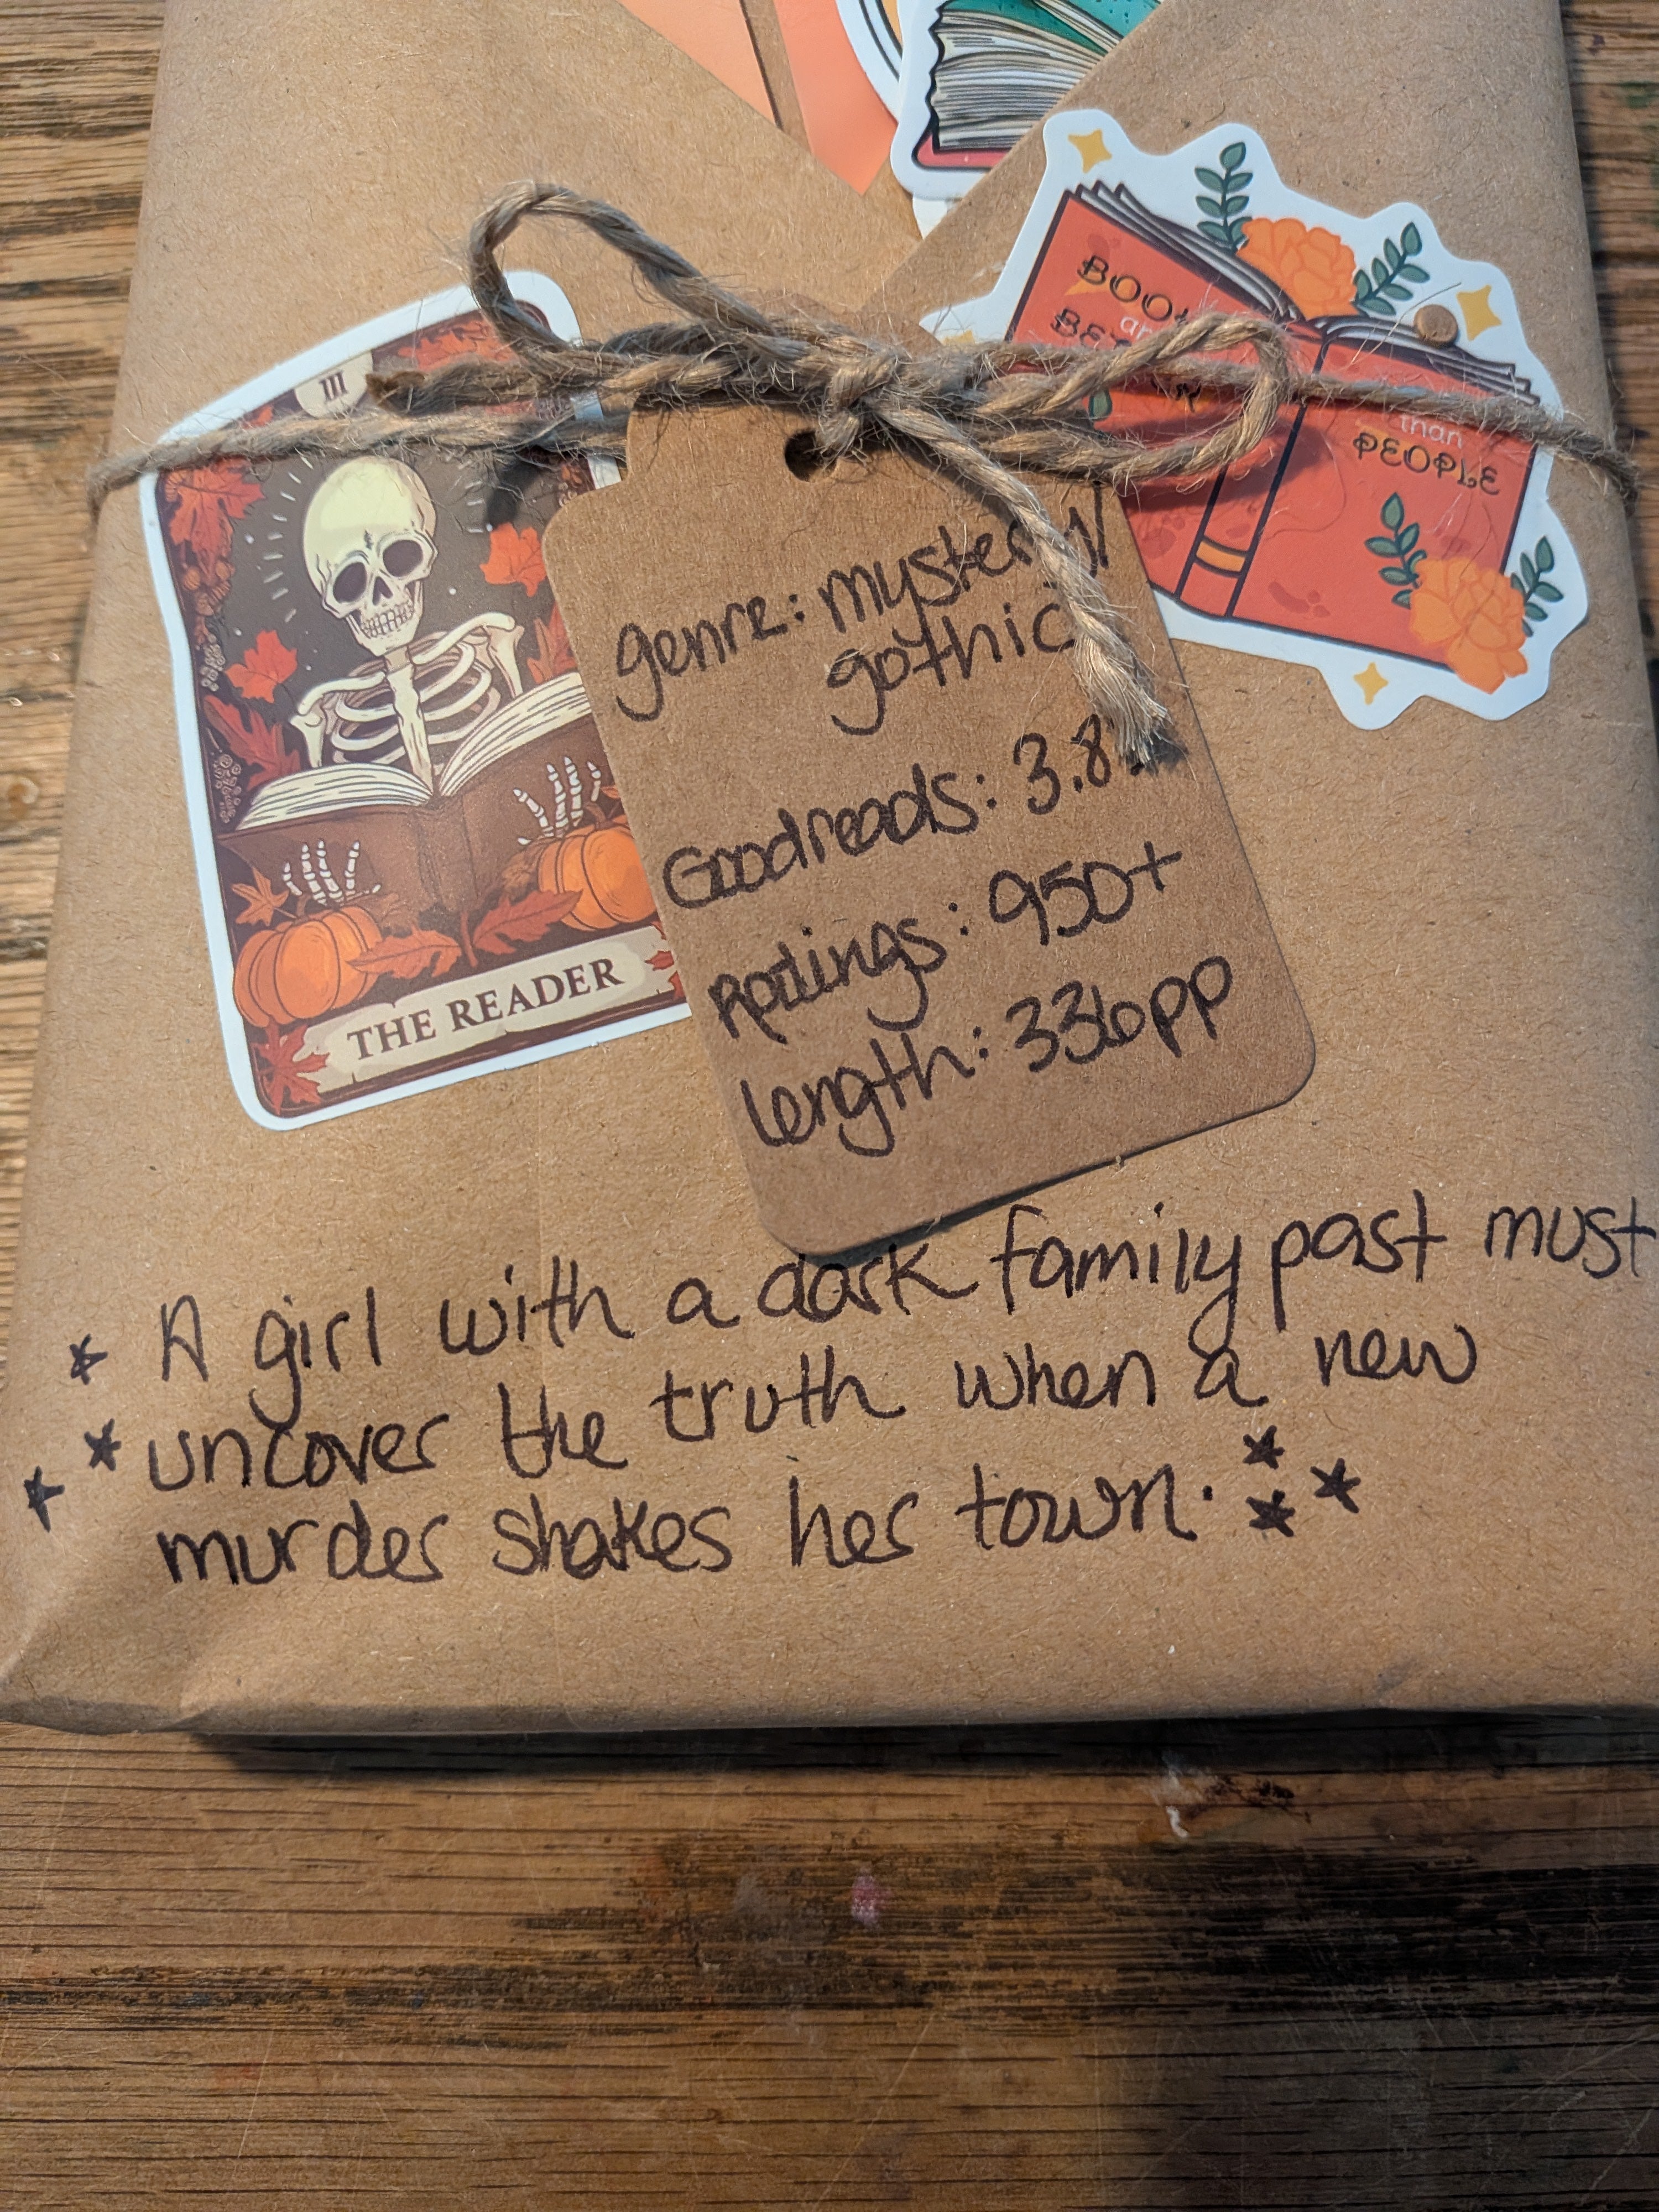 III
THE READER
than
PEOPLE
genre: mystery/
gothic
Goodreads: 3.8
Ratings: 950+
length: 336pp
A girl with a dark family past must
uncover the truth when a new
murder shakes her town.